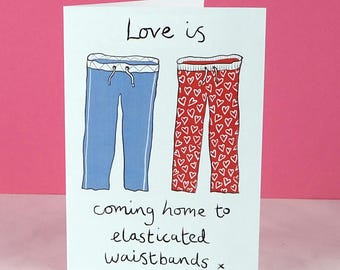 Love is
coming home to
elasticated
waistbands x